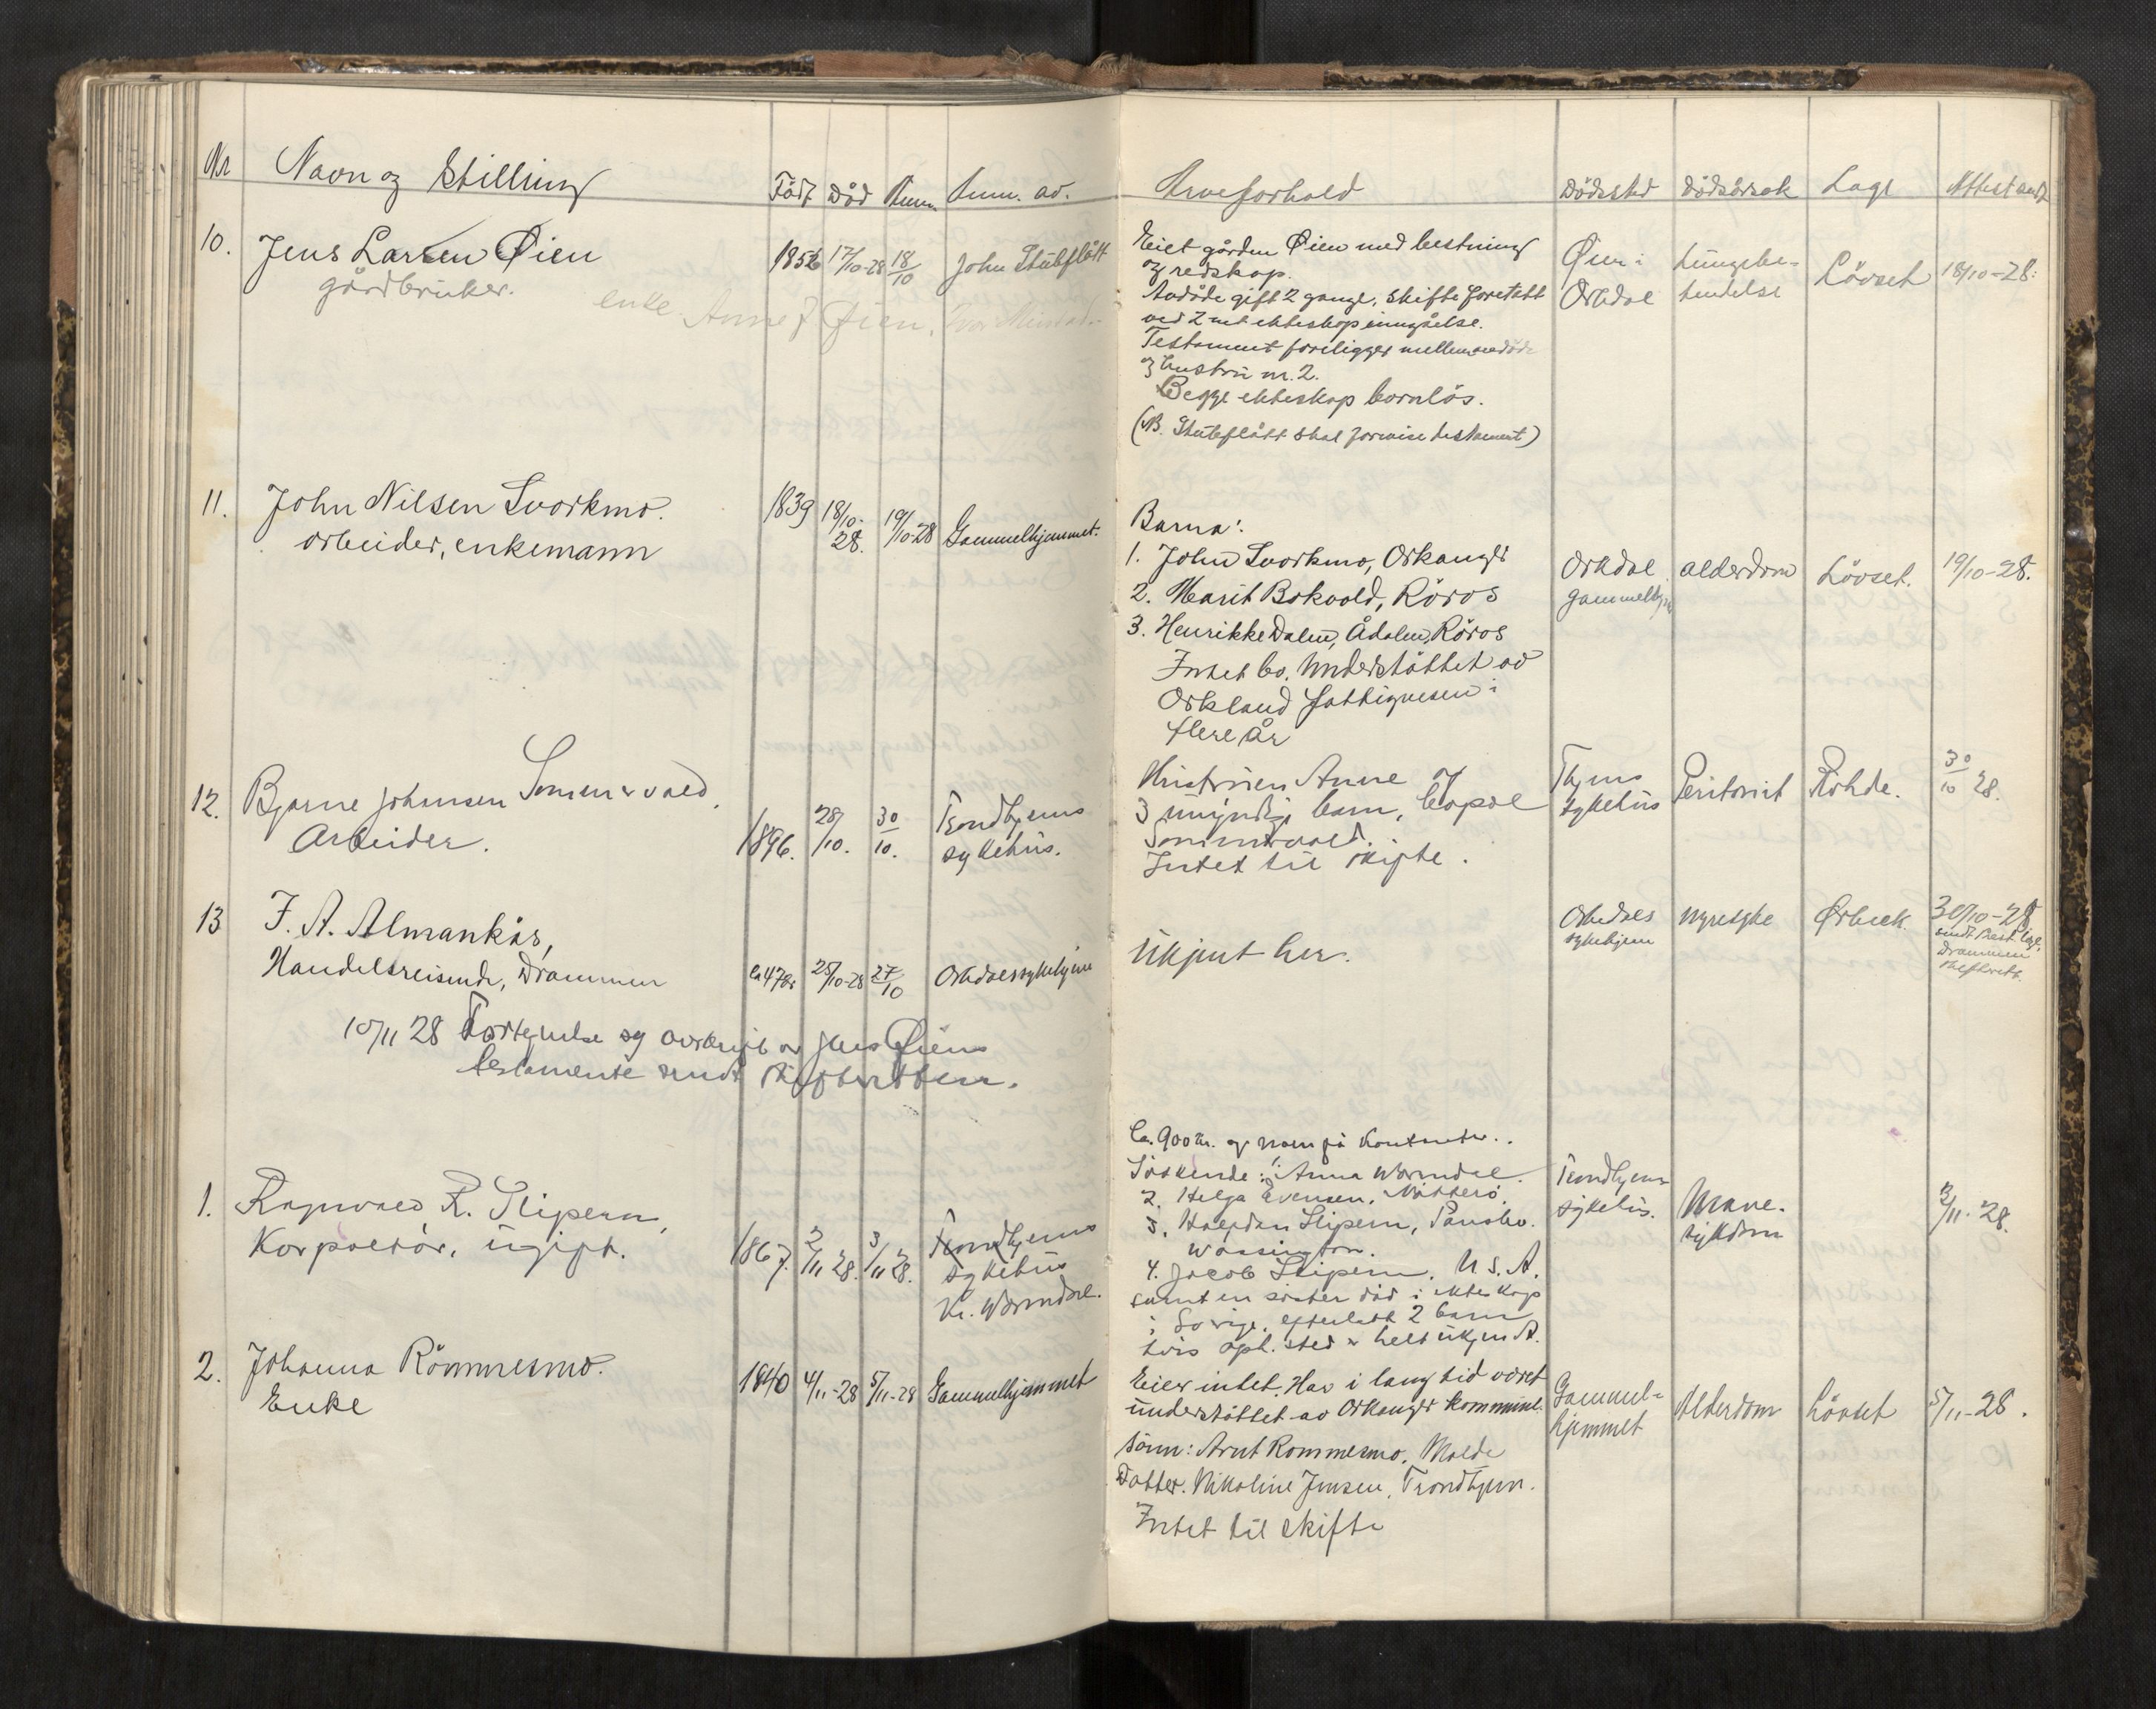 Nr Navn og Stilling Född Död Anm. Anm. av.
10. Jens Larsen Øien 1856 17/10-28 18/10 John Stubflått
gårdbruker.
enke Anne J Øien,
11. John Nilsen Svorkmo. 1839 18/10-28. 19/10-28 Gammelhjemmet.
arbeider, enkemann
12. Bjarne Johansen Sommervold. 1896. 28/10. 30/10. Trondhjems
Arbeider. sykehus.
13 F. A. Almankås,
Handelsreisende, Drammen ca 47 år 25/10-28 27/10 Orkdalssykehjem
10/11 28 Fortegnelse og avskrift av Jens Øiens
testamente sendt skifteretten.
1. Ragnvald R. Slipern,
Korpoelör, ugift. 1867. 2/11 28. 3/11 28. Trondhjems
sykehus
Kr. Wormdal.
2. Johanna Römmesmo. 1840 4/11-28 5/11-28 Gammelhjemmet
Enke
Arveforhold Dödssted Dödsårsak Læge Attest sendt
Eiet gården Øien med besetning Øien i lungebe- Lövset 18/10-28.
og redskap. Orkdal tendelse
Avdöde gift 2 gange, skifte foretatt
ved 2net ekteskaps inngåelse.
Testament foreligger mellem avdöde
og hustru nr. 2.
Begge ekteskap barnlös.
(NB. Stubflått skal forevise testament)
Barna:
1. John Svorkmo, Orkanger Orkdal alderdom Lövset. 19/10-28.
2. Marit Bokvold, Röros gammelhjem
3. Henrikke Dalen, Ådalen, Röros
Intet bo. Understöttet av
Orkland fattigvesen i
flere år
Hustruen Anne og Thjms Peritonit Rohde. 30/10 28.
3 umyndige barn, bopæl sykehus
Sommervold.
Intet til skifte.
Ukjent her. Orkdals nyresyke Ørbeck. 30/10-28
sykehjem sendt Best. lege,
Drammen
skifterett.
Ca. 900 kr. og noen på Kontoret..
Söskende: 1. Anna Wormdal. Trondhjems Mave- 3/11-28.
2. Helga Evensen, Nötterö. sykehus. sykdom
3. Halfdan Slipern,
Wassington.
4. Jacob Slipern, U. S. A.
samt en söster död i ekteskap
i Sverige, efterlatt 2 barn
hvis oph. sted er helt ukjendt.
Eier intet. Har i lang tid været Gammel- Alderdom Lövset 5/11-28.
understöttet av Orkanger kommune. hjemmet
Sönn: Arnt Rommesmo, Molde
Datter. Nikoline Jensen, Trondhjem.
Intet til skifte